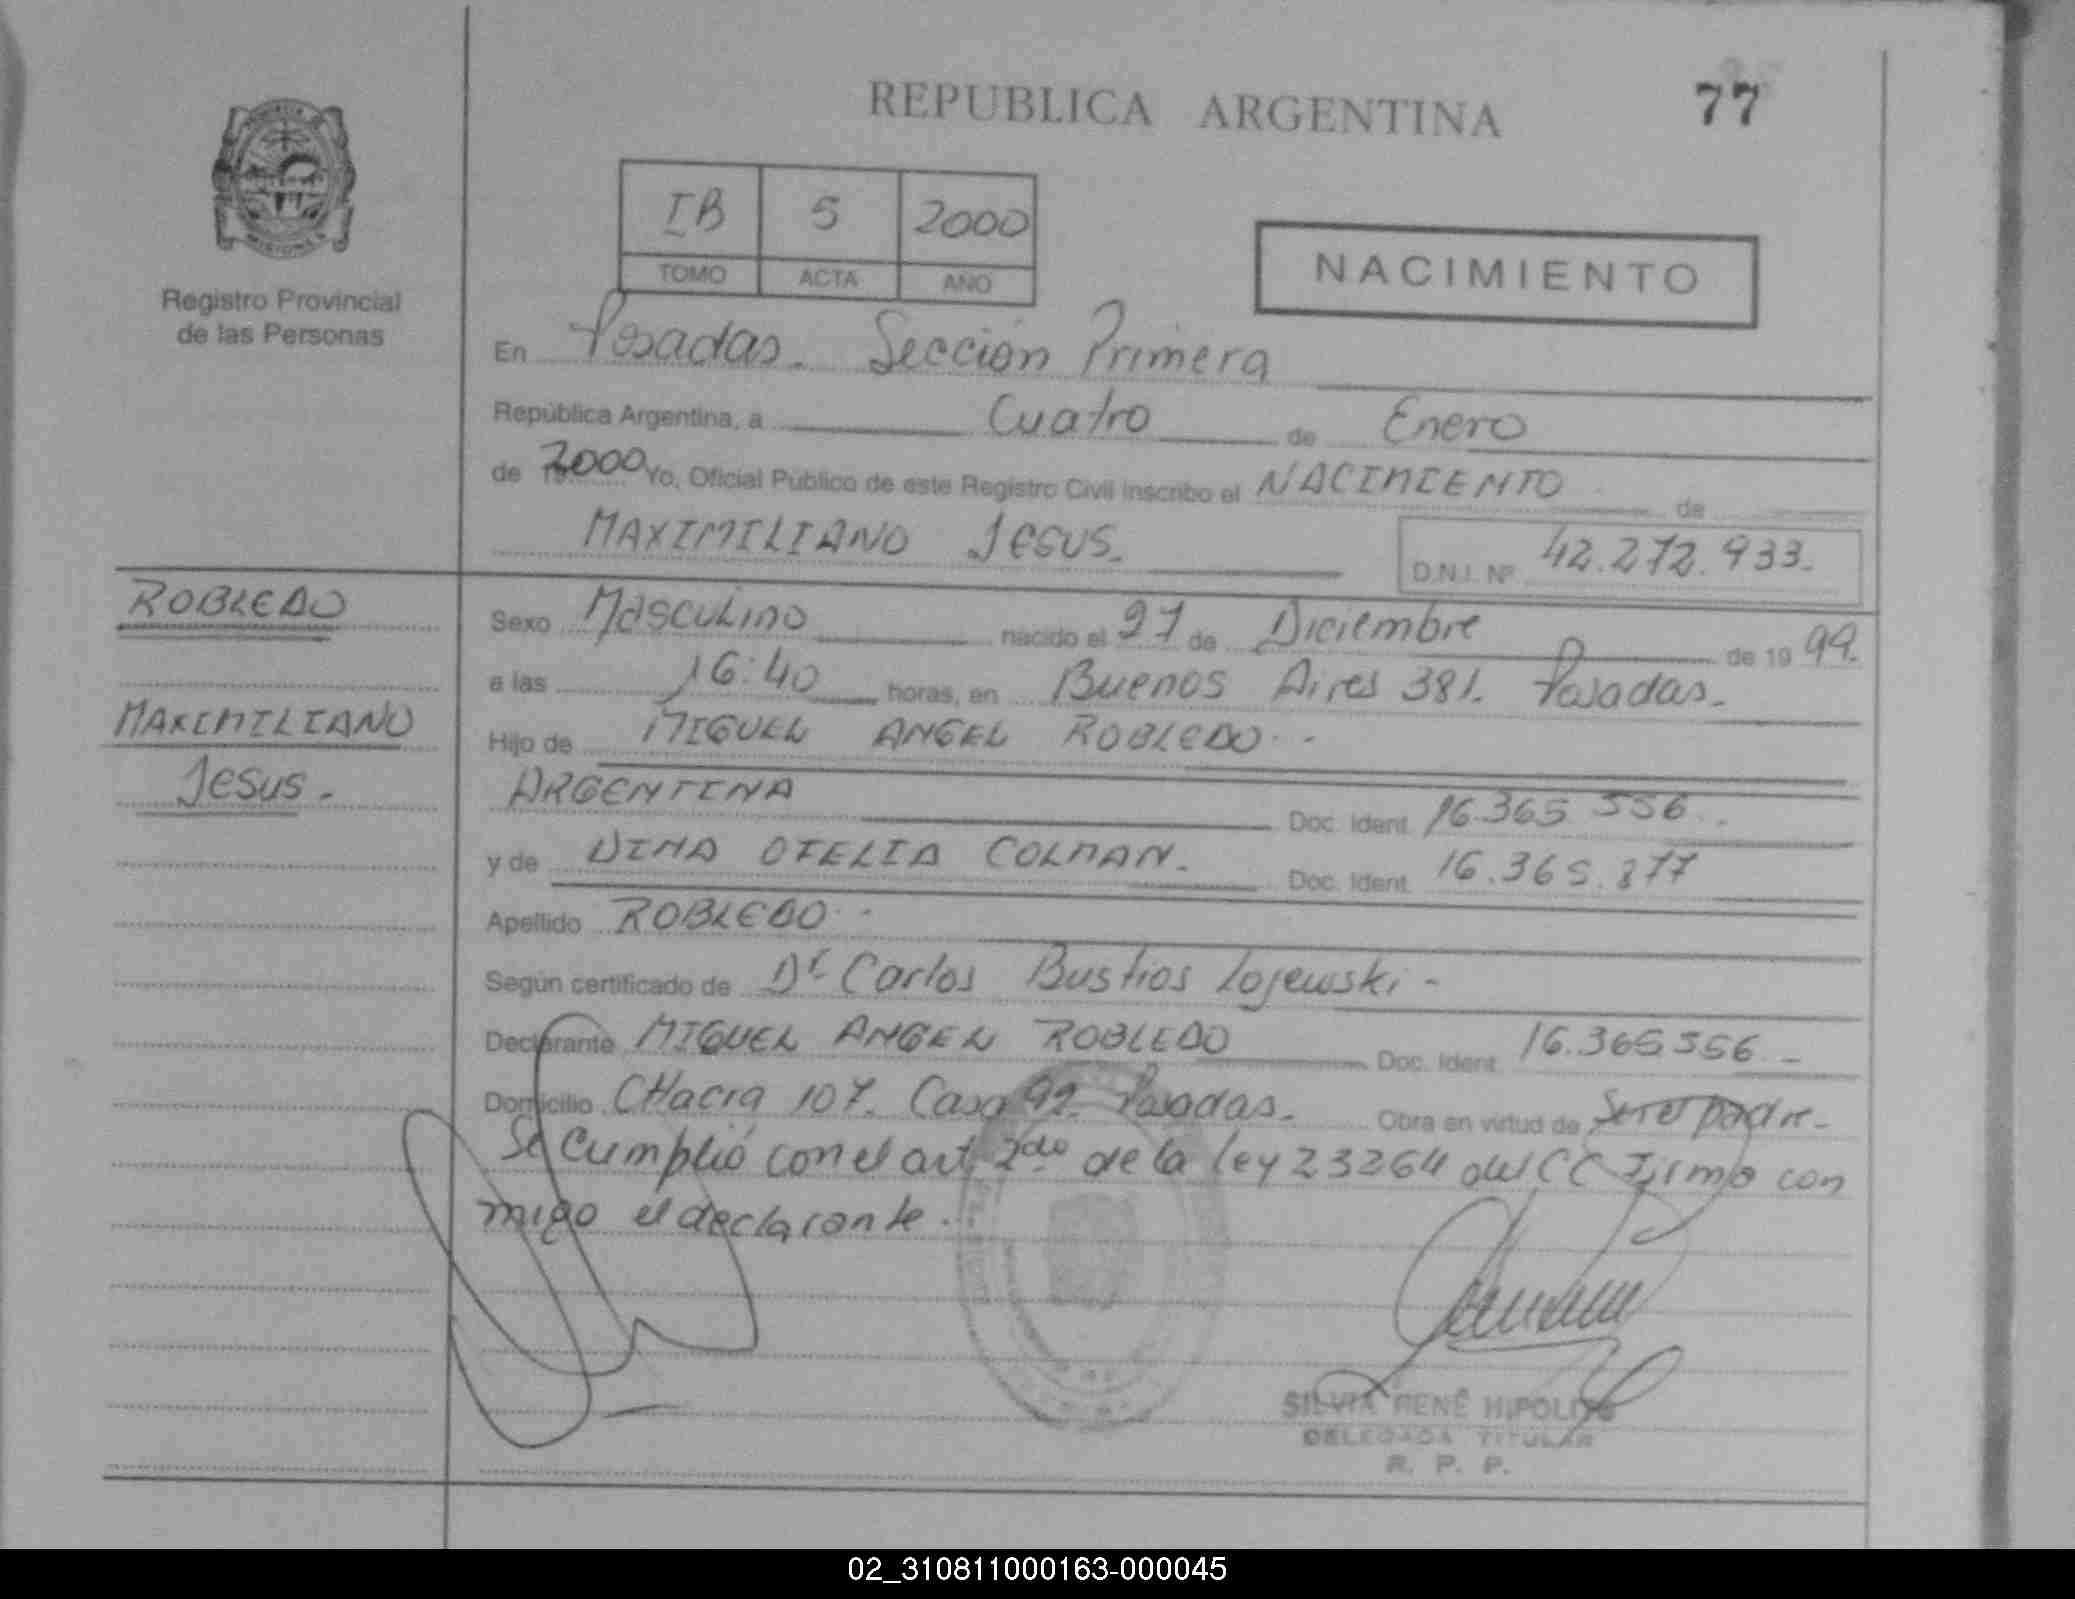 REPUBLICA ARGENTINA
77
IB 5 2000
TOMO ACTA AÑO
NACIMIENTO
Registro Provincial
de las Personas
En Posadas. Sección Primera
República Argentina, a Cuatro de Enero
de 2000 Yo, Oficial Público de este Registro Civil inscribo el NACIMIENTO de
MAXIMILIANO JESUS.
D.N.I. Nº 42.272.933.
ROBLEDO
MAXIMILIANO
Jesus.
Sexo Masculino nacido el 27 de Diciembre de 19 99.
a las 16:40 horas, en Buenos Aires 381. Posadas.
Hijo de MIGUEL ANGEL ROBLEDO.
ARGENTINA Doc. Ident. 16.365.556.
y de OTELIA COLMAN. Doc. Ident. 16.365.877
Apellido ROBLEDO.
Según certificado de Dr Carlos Bustios Lojewski -
Declarante MIGUEL ANGEL ROBLEDO Doc. Ident. 16.365556 -
Domicilio CHacra 107. Casa 92. Posadas. Obra en virtud de Ser el padre -
Se cumplió con el art. 2do de la ley 23264 del CC Firma con
migo el declarante.
SILVIA RENÉ HIPOLITO
DELEGADA TITULAR
R. P. P.
02_310811000163-000045